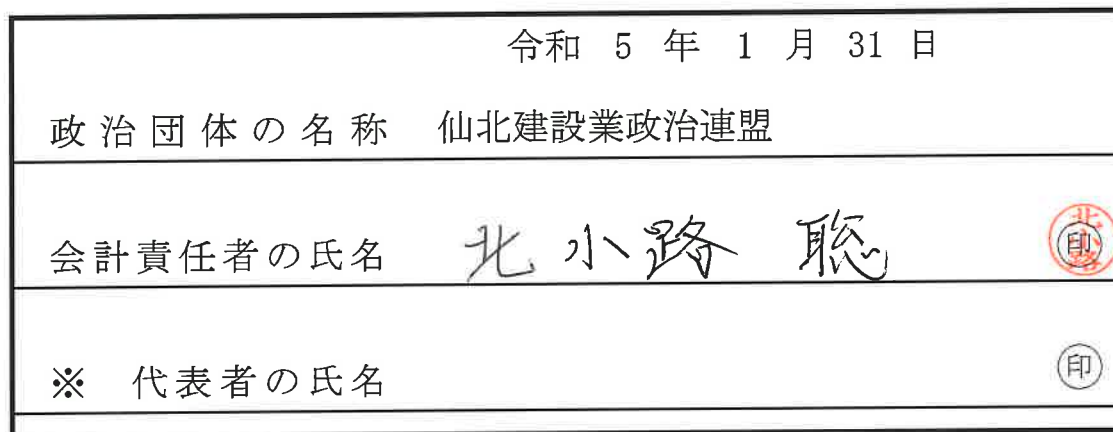 令和 5 年 1 月 31 日
政治団体の名称 仙北建設業政治連盟
会計責任者の氏名 北小路 聡 印 北小路
※ 代表者の氏名 印